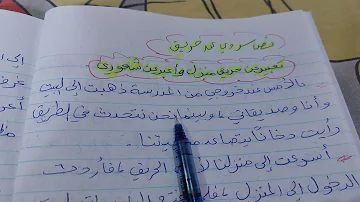 نص سردي عن حريق
تعبير عن حريق منزل وأعبر عن شعوري
بالأمس عند خروجي من المدرسة ذهبت إلى البيت
وأنا وصديقاتي وبينما نحن نتحدث في الطريق
رأيت دخانا يتصاعد من بيتنا
أسرعت إلى منزلنا الحريق فأردت
الدخول إلى المنزل